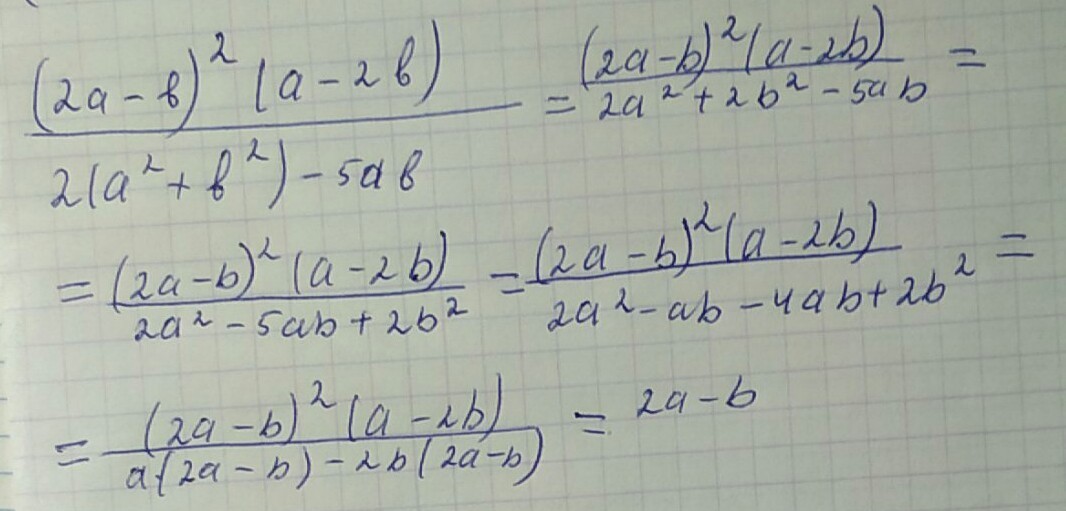 (2a-b)²(a-2b) / 2(a²+b²)-5ab = (2a-b)²(a-2b) / 2a²+2b²-5ab =
= (2a-b)²(a-2b) / 2a²-5ab+2b² = (2a-b)²(a-2b) / 2a²-ab-4ab+2b² =
= (2a-b)²(a-2b) / a(2a-b)-2b(2a-b) = 2a-b